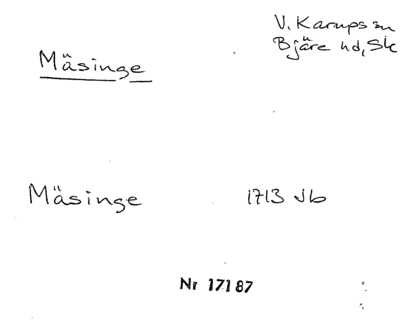 V. Karups sn
Bjäre hd, Sk
Mäsinge
Mäsinge 1713 Jb
Nr 17187